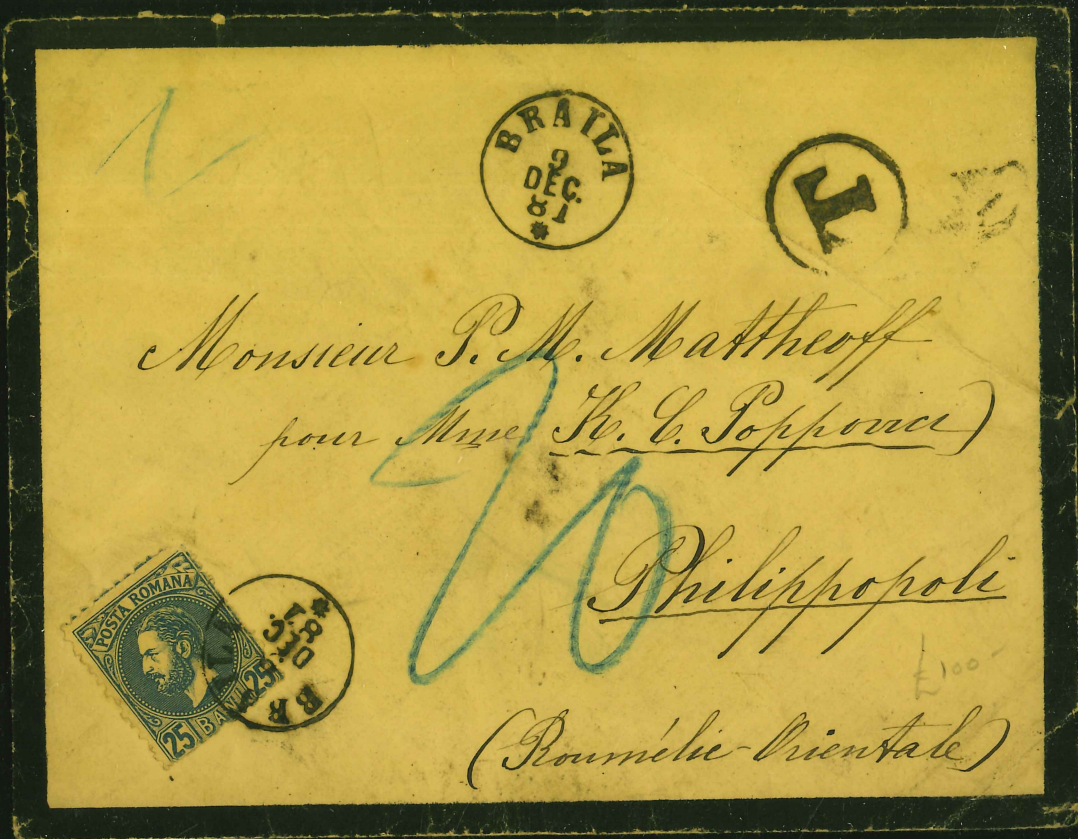 BRAILA
9
DEC.
81
T
Monsieur P. M. Mattheoff
pour Mme K. C. Poppovici)
20
Philippopoli
(Roumélie-Orientale)
£100-
POSTA ROMANA
25 BANI 25
DEC.
81